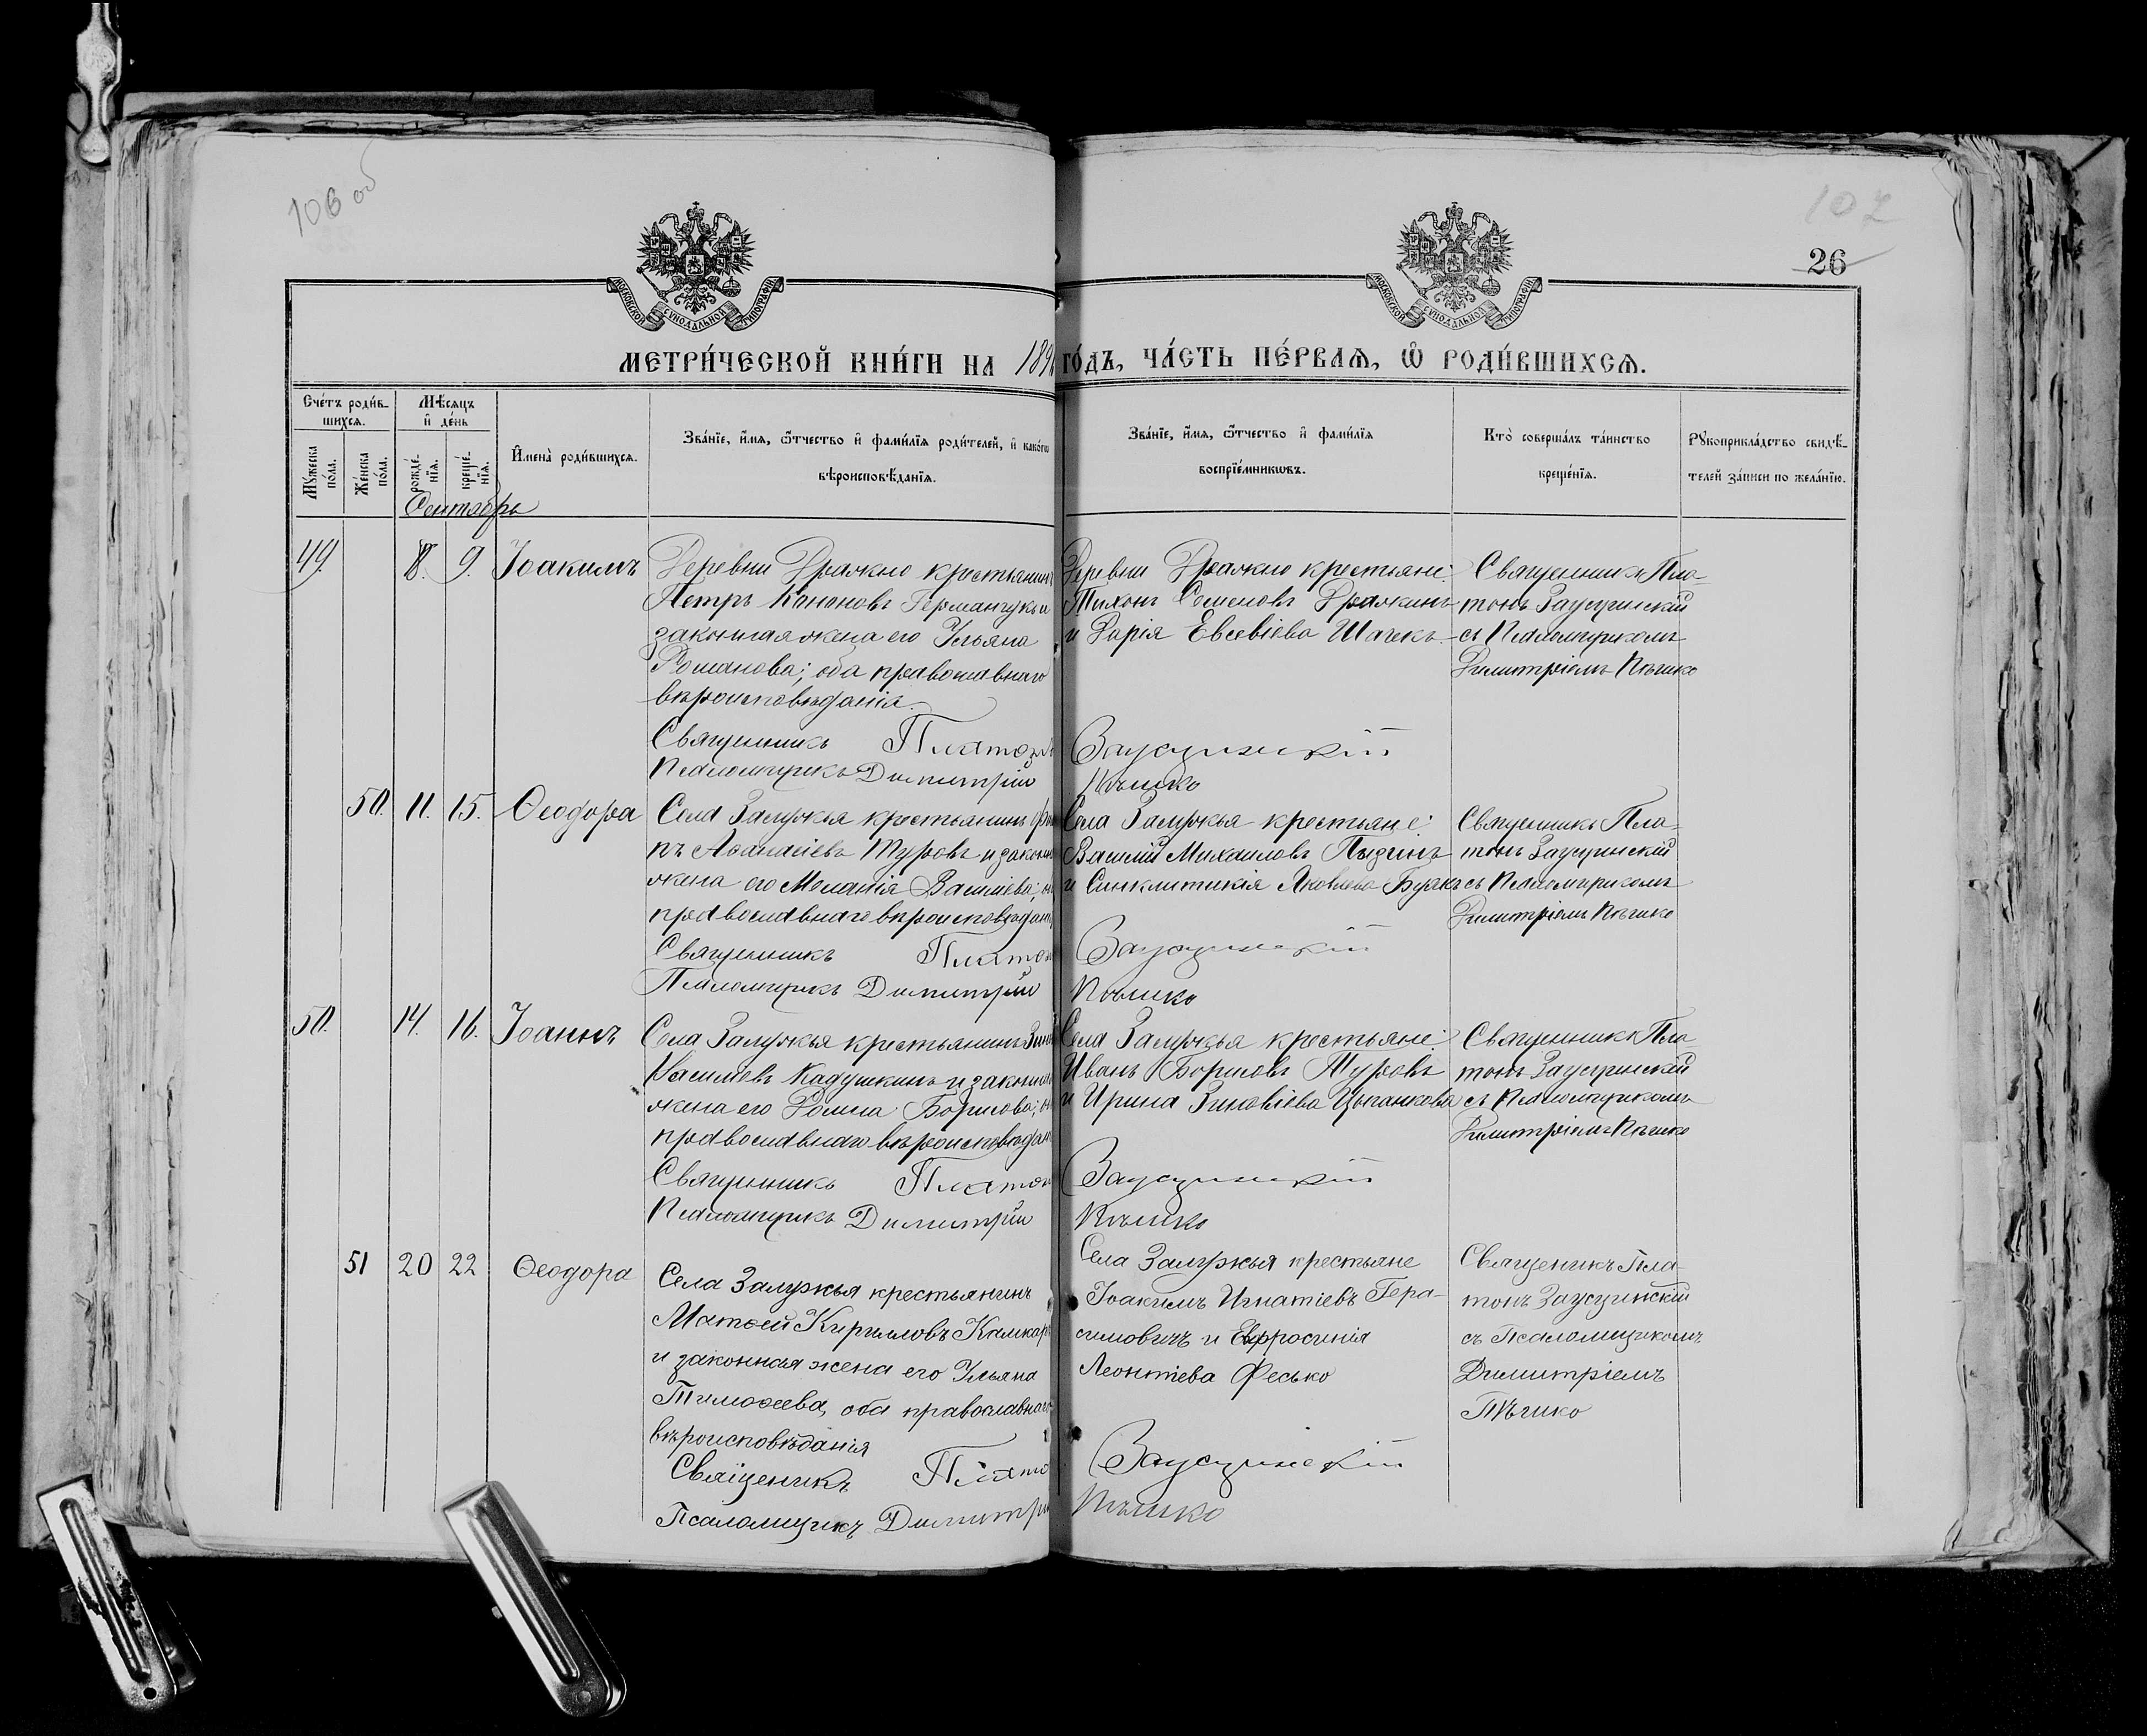 106 об
107
26
МОСКОВСКОЙ СѴНОДАЛЬНОЙ ТИПОГРАФІИ
МОСКОВСКОЙ СѴНОДАЛЬНОЙ ТИПОГРАФІИ
МЕТРИ́ЧЕСКОЙ КНИ́ГИ НА 189
ГО́ДЪ, ЧА́СТЬ ПЕ́РВАѦ, Ѽ РОДИ́ВШИХСѦ.
Сче́тъ роди́в-
шихсѧ.
Мѣ́сѧцъ
и҆ де́нь
Мꙋ́жеска по́ла.
Же́нска по́ла.
рожде́-
нїѧ.
креще́-
нїѧ.
И҆мена̀ роди́вшихсѧ.
Зва́нїе, и҆́мѧ, ѻ҆́тчество и҆ фами́лїѧ роди́телей, и҆ како́гѡ
вѣроисповѣ́данїѧ.
Зва́нїе, и҆́мѧ, ѻ҆́тчество и҆ фами́лїѧ
воспрїе́мникѡвъ.
Кто̀ соверша́лъ та́инство
креще́нїѧ.
Рꙋкоприкла́дство свидѣ́-
телей за́писи по жела́нїю.
Сентябрь
49. 8. 9. Іоакимъ
Деревни Дражно крестьянинъ
Петръ Кононовъ Германчукъ и
законная жена его Ульяна
Романова; оба православнаго
вѣроисповѣданія.
Священникъ Платонъ
Псаломщикъ Димитрій
Деревни Дражно крестьяне:
Тихонъ Семеновъ Дражкинъ
и Дарія Евсевіева Шачекъ.
Заусцинскій
Пѣшко
Священникъ Пла-
тонъ Заусцинскій
съ Псаломщикомъ
Димитріемъ Пѣшко
50. 11. 15. Ѳеодора
Села Залужья крестьянинъ
пъ Аѳанасіевъ Туровъ и законн
жена его Меланія Васильева;
православнаго вѣроисповѣдан
Священникъ Платон
Псаломщикъ Димитрій
Села Залужья крестьяне:
Василій Михаиловъ Пызинъ
и Синклитикія Яковлева Буякъ
Заусцинскій
Пѣшко
Священникъ Пла-
тонъ Заусцинскій
съ Псаломщикомъ
Димитріемъ Пѣшко
50. 14. 16. Іоаннъ
Села Залужья крестьянинъ Зино
Васильевъ Кадушкинъ и законная
жена его Домна Борисова;
православнаго вѣроисповѣдан
Священникъ Платон
Псаломщикъ Димитрій
Села Залужья крестьяне:
Иванъ Борисовъ Туровъ
и Ирина Зиновіева Цыганкова
Заусцинскій
Пѣшко
Священникъ Пла
тонъ Заусцинскій
съ Псаломщикомъ
Димитріемъ Пѣшко
51 20 22 Ѳеодора
Села Залужья крестьянинъ
Матѳей Кирилловъ Камкар
и законная жена его Ульяна
Тимоѳеева, оба православнаго
вѣроисповѣданія
Священикъ Плато
Псаломщикъ Димитрі
Села Залужья крестьяне
Іоакимъ Игнатіевъ Гера-
симовичъ и Евфросинія
Леонтіева Фесько
Заусцинскій
Пѣшко
Священикъ Пла-
тонъ Заусцинскій
съ Псаломщикомъ
Димитріемъ
Пѣшко